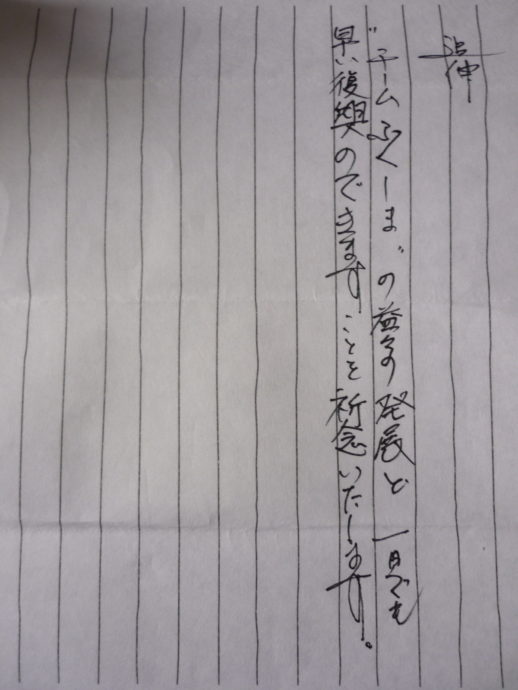 追伸
"チームふくしま"の益々発展と一日でも
早い復興のできますことを祈念いたします。